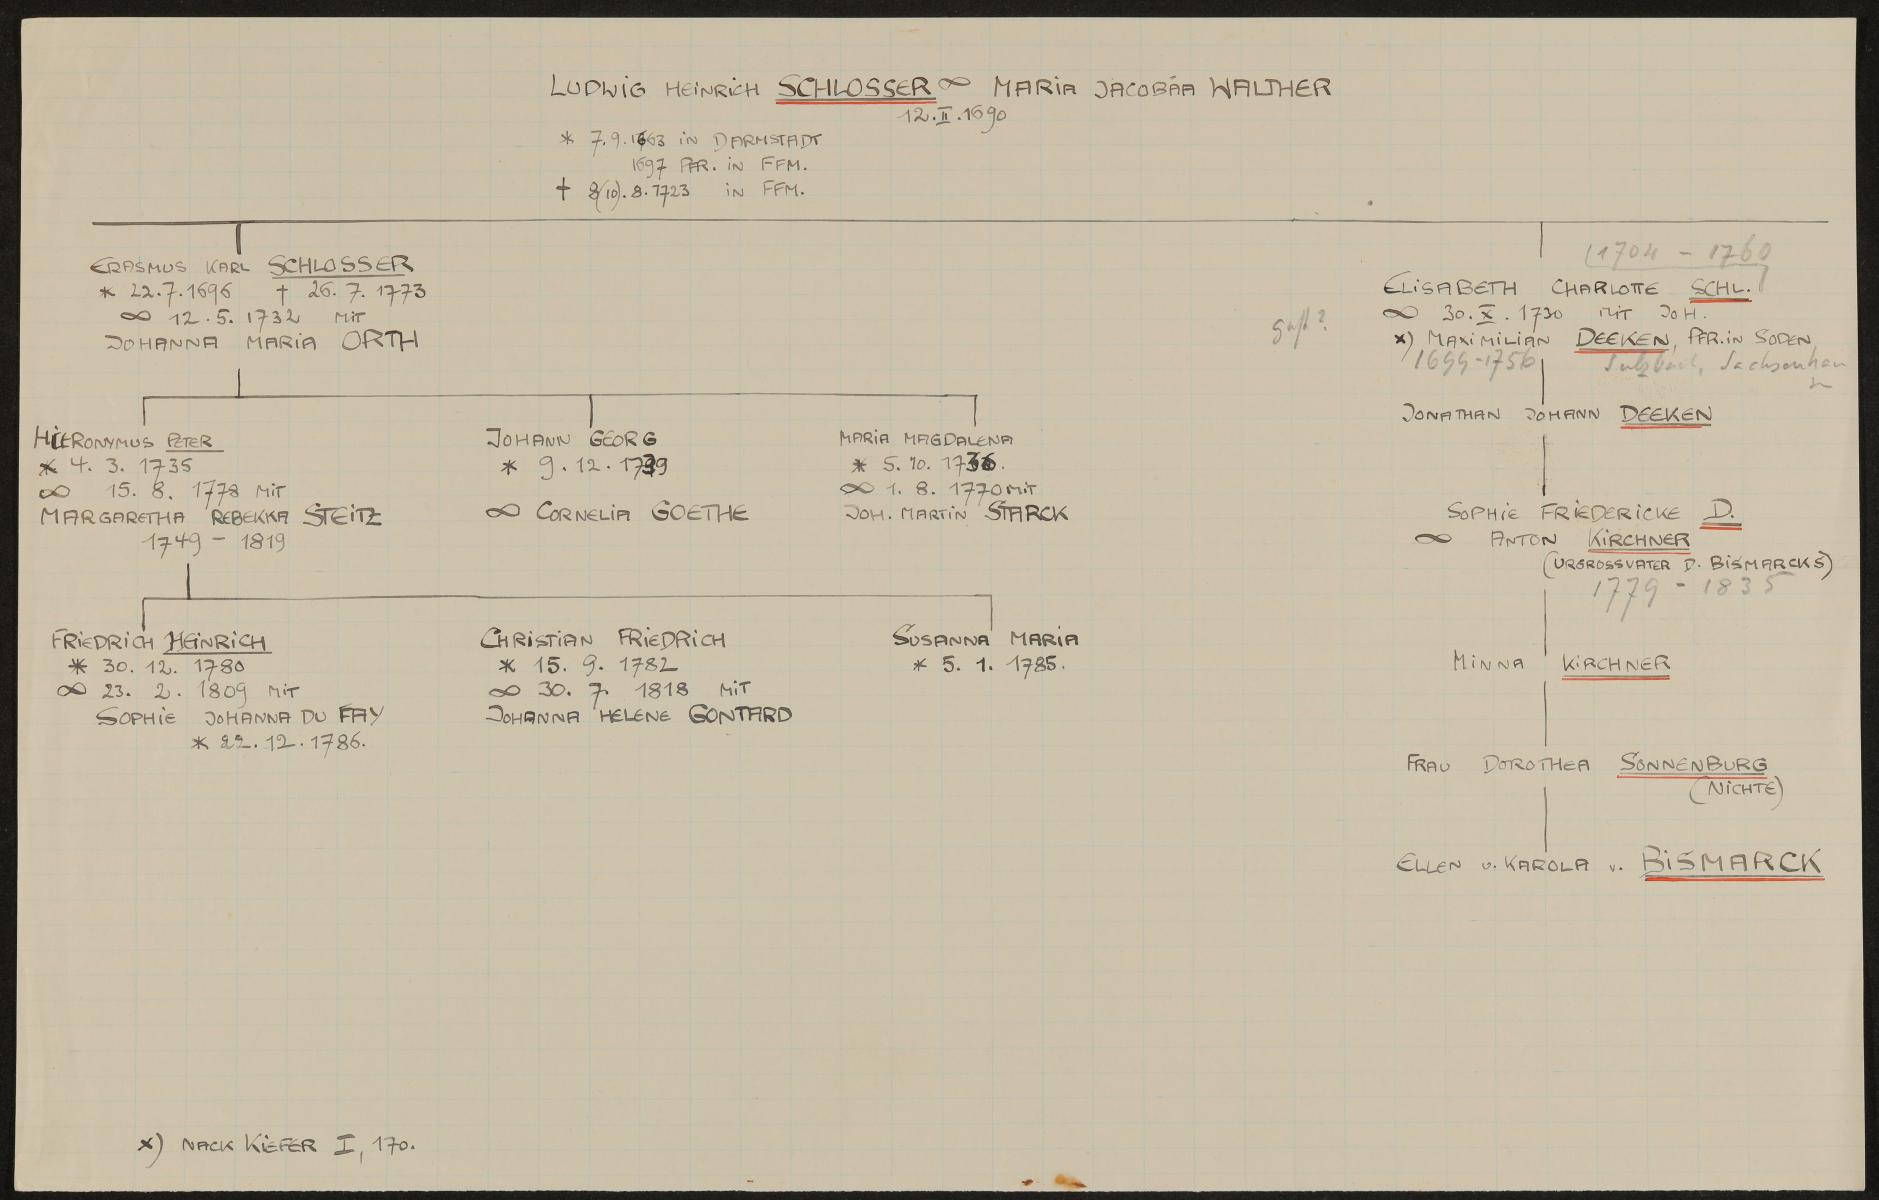 LUDWIG HEINRICH SCHLOSSER ∞ MARIA JACOBÄA WALTHER
12.II.1690
* 7.9.1663 IN DARMSTADT
1697 PFR. IN FFM.
† 8(10).8.1723 IN FFM.
ERASMUS KARL SCHLOSSER
* 22.7.1696 † 26.7.1773
∞ 12.5.1732 MIT
JOHANNA MARIA ORTH
(1704 - 1760
ELISABETH CHARLOTTE SCHL.
∞ 30.X.1730 MIT JOH.
x) MAXIMILIAN DEEKEN, PFR. IN SODEN,
1699-1756 Sulzbach, Sachsenhau
JONATHAN JOHANN DEEKEN
SOPHIE FRIEDERICKE D.
∞ ANTON KIRCHNER
(URGROSSVATER D. BISMARCKS)
1779 - 1835
MINNA KIRCHNER
FRAU DOROTHEA SONNENBURG
(NICHTE)
ELLEN u. KAROLA v. BISMARCK
HIERONYMUS PETER
* 4. 3. 1735
∞ 15. 8. 1778 MIT
MARGARETHA REBEKKA STEITZ
1749 - 1819
JOHANN GEORG
* 9.12.1739
∞ CORNELIA GOETHE
MARIA MAGDALENA
* 5.10.1736.
∞ 1. 8. 1770 MIT
JOH. MARTIN STARCK
FRIEDRICH HEINRICH
* 30. 12. 1780
∞ 23. 2. 1809 MIT
SOPHIE JOHANNA DU FAY
* 22.12.1786.
CHRISTIAN FRIEDRICH
* 15. 9. 1782
∞ 30. 7. 1818 MIT
JOHANNA HELENE GONTARD
SUSANNA MARIA
* 5. 1. 1785.
x) NACK KIEFER I, 170.